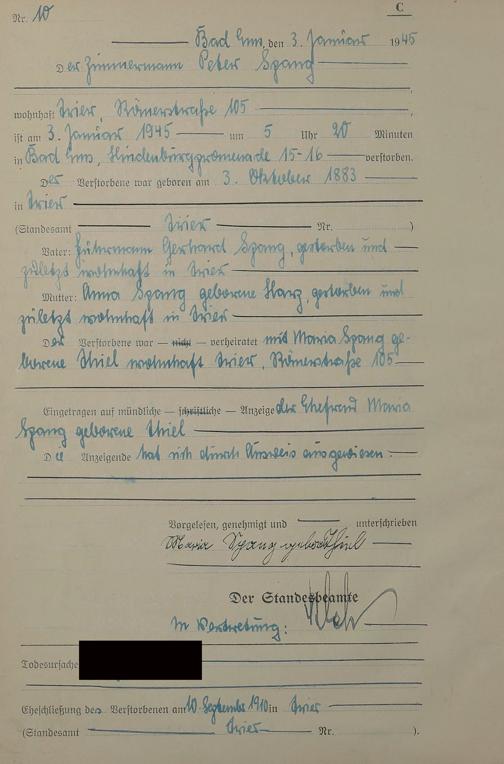 C
Nr. 10
Bad Ems, den 3. Januar 1945
Der Zimmermann Peter Spang
wohnhaft Trier, Römerstraße 105
ist am 3. Januar 1945 um 5 Uhr 20 Minuten
in Bad Ems, Hindenburgpromenade 15-16 verstorben.
Der Verstorbene war geboren am 3. Oktober 1883
in Trier
(Standesamt Trier Nr. )
Vater: Gerhard Spang, gestorben und
zuletzt wohnhaft in Trier
Mutter: Anna Spang geborene Harz, gestorben und
zuletzt wohnhaft in Trier
Der Verstorbene war — nicht — verheiratet mit Maria Spang ge-
borene Thiel wohnhaft Trier, Römerstraße 105
Eingetragen auf mündliche — schriftliche — Anzeige der Ehefrau Maria
Spang geborene Thiel
Die Anzeigende hat sich durch Ausweis ausgewiesen.
Vorgelesen, genehmigt und unterschrieben
Maria Spang geb. Thiel
Der Standesbeamte
In Vertretung:
Todesursache
Eheschließung des Verstorbenen am 10. September 1910 in Trier
(Standesamt Trier Nr. ).